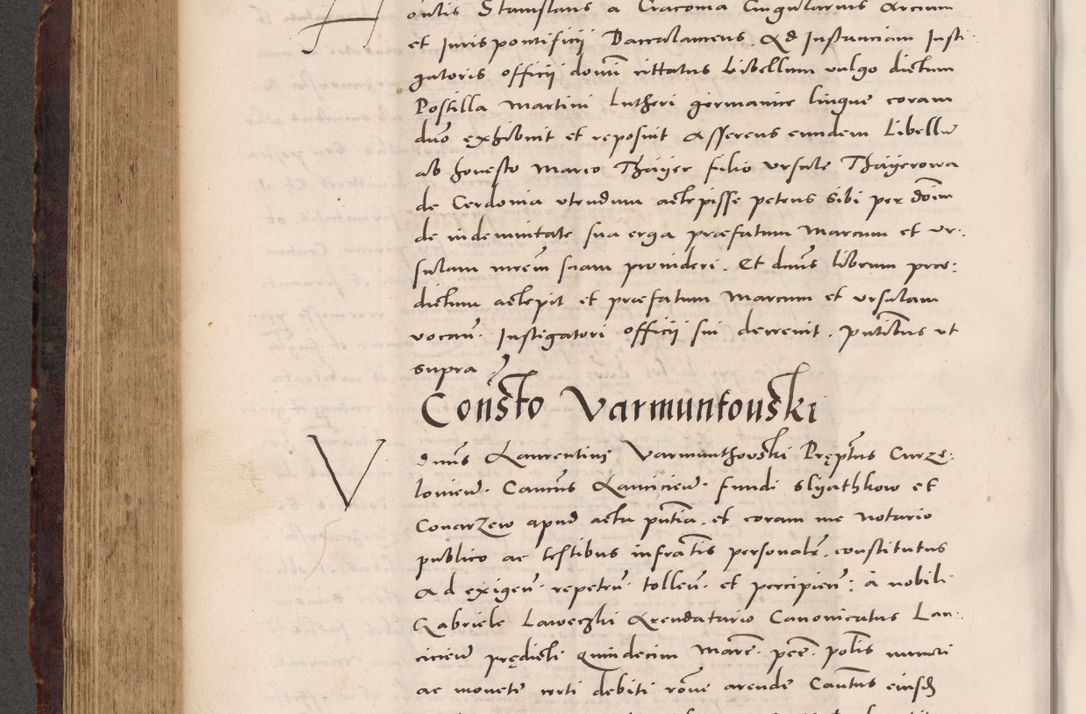 ontis Stanislaus a Cracovia Cingularius Arcium
et Juris pontificij Baccalaureus. Ad Instanciam Insti
gatoris officij domi citatus Libellum vulgo dictum
Postilla Martini Lutheri germanice lingue coram
dno exhibuit et reposuit Asserens eundem Libellū
ab honesto Marco Thayer filio Ursule Thayerowa
de Cerdonia utendum accepisse petens sibi per dōim
de indemnitate sua erga præfatum Marcum et Ur:
sulam mrem suam provideri. Et dnus librum præ:
dictum accepit et præfatum Marcum et Ursulam
vocan. Instigatori officij sui decrevit. pntibus ut
supra
Consto Varmuntouski
V
dnus Laurentius Varmunthovski Prepūs Curze:
lovien. Canous Lancicien. fundi Slyathkow et
Conarzew apud acta pntia. et coram me Notario
publico ac testibus infratis personalr. constitutus
Ad exigen. repetēn. tollen. et percipien: à nobili
Gabriele Laweczki Arendatario Canonicatus Lan:
cicien prędicti Quindecim Marc. pec. polis numeri
ac monete in rti debiti rōne arende Cantus eiusd